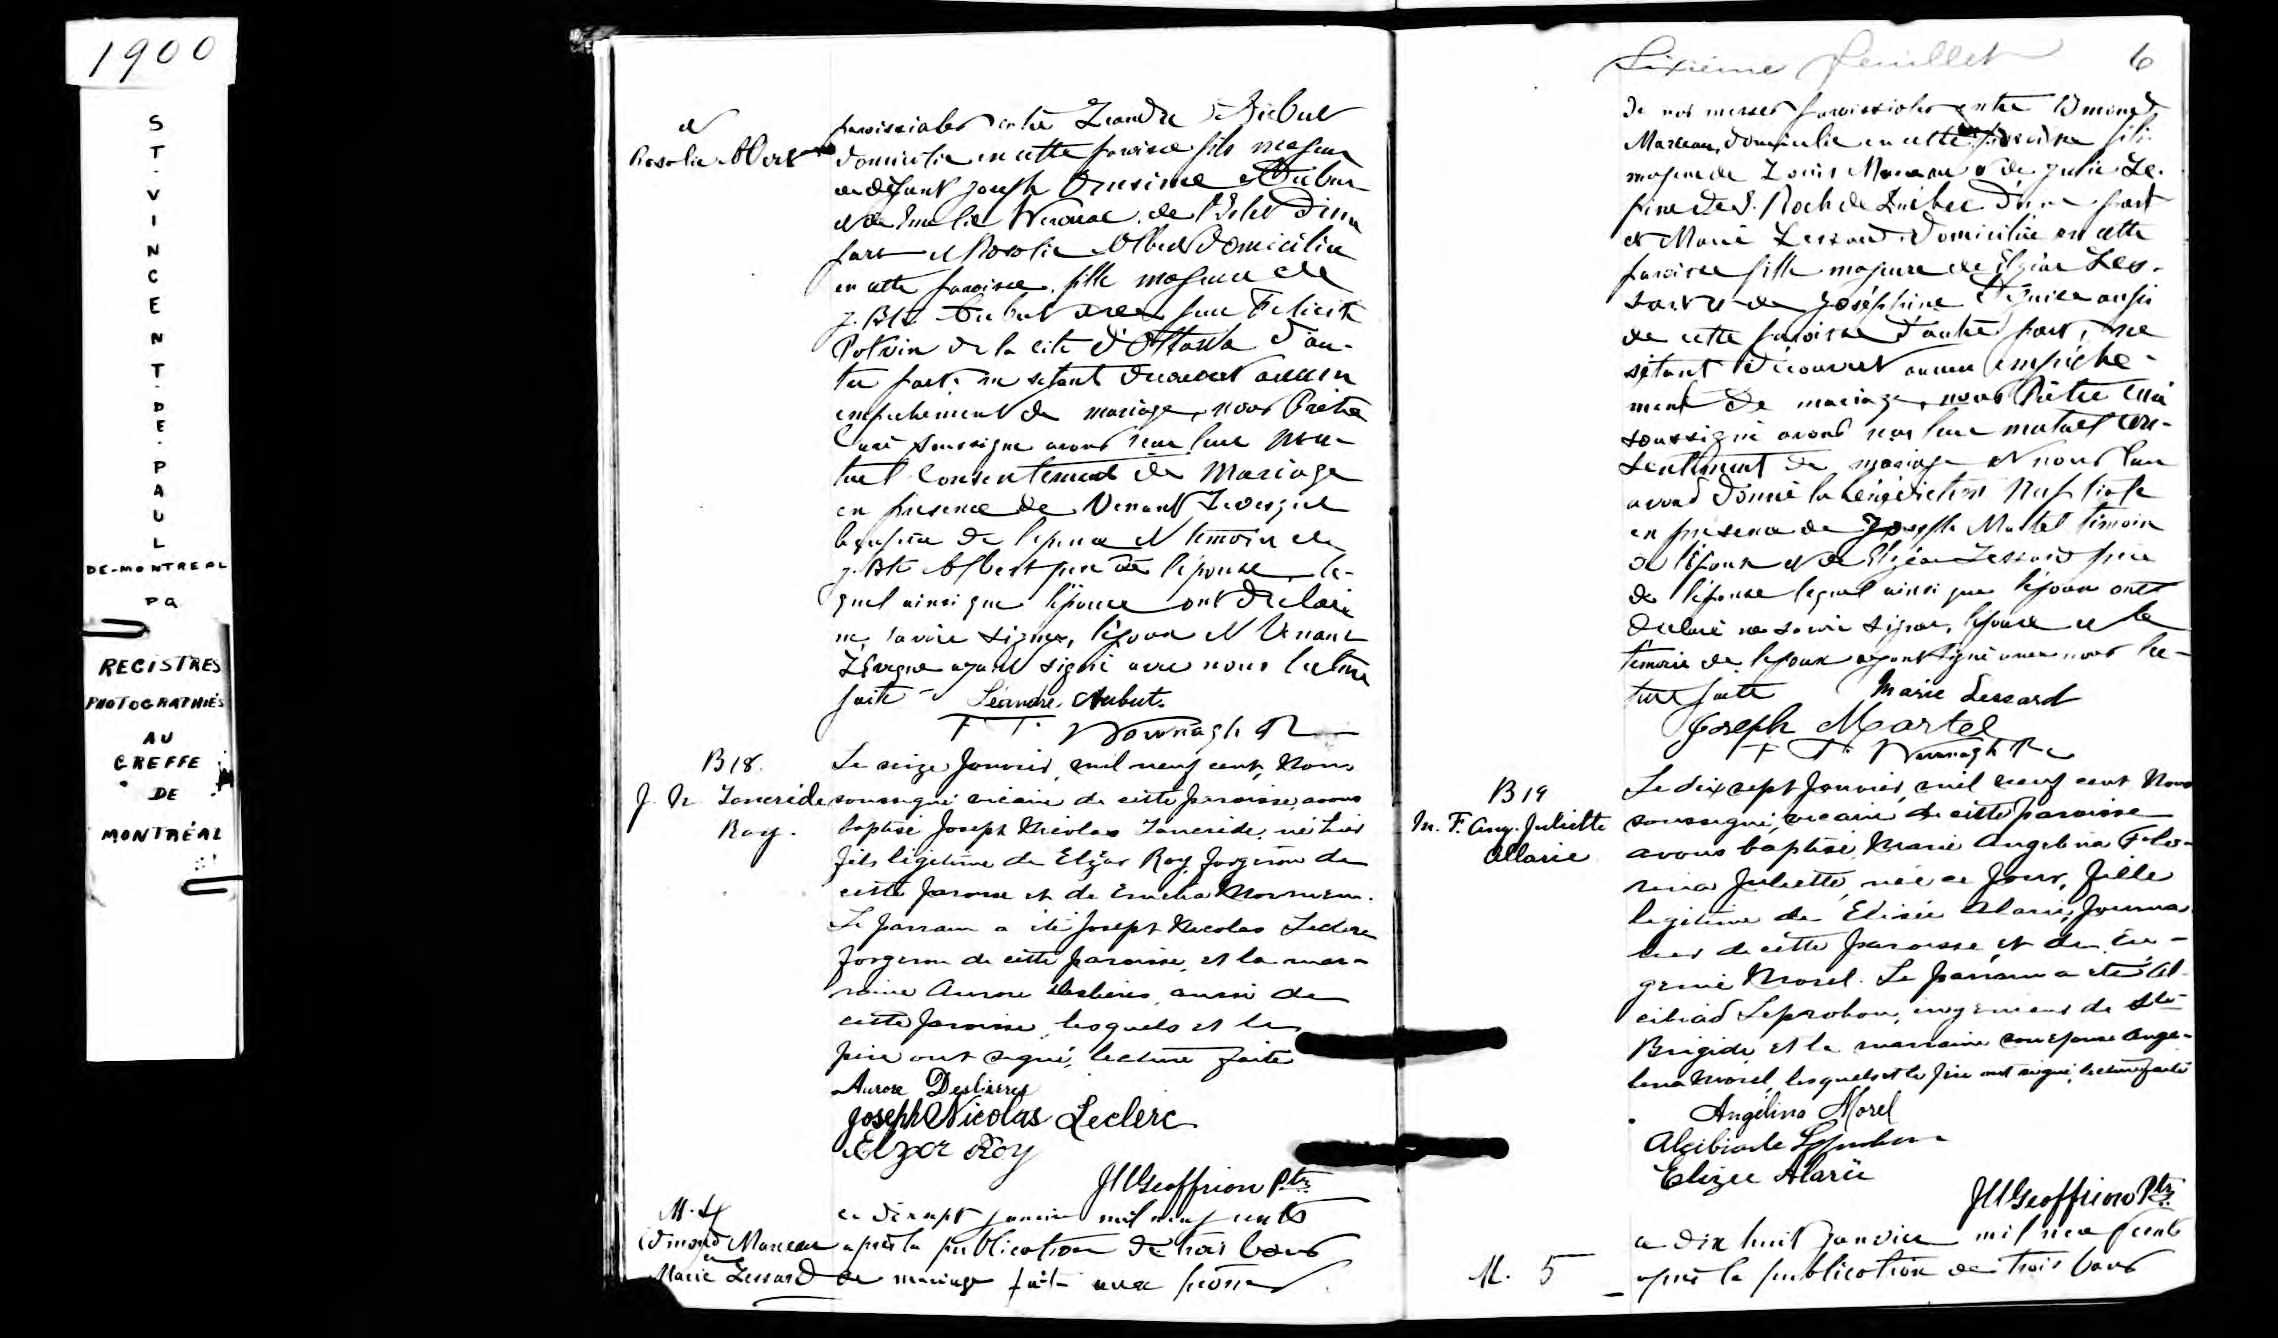 1900
ST. VINCENT. DE. PAUL
DE-MONTREAL
PQ
REGISTRES
PHOTOGRAPHIÉS
AU
GREFFE
DE
MONTRÉAL
et
Rosalie Albert
paroissiales entre Léandre Aubut
domicilié en cette paroisse fils majeur
de défunt Joseph Onesime Aubut
et de de l'Islet d'une
part et Rosalie Albert domiciliée
en cette paroisse, fille majeure de
J. Bte et de feue Félicité
Potvin de la cité d'Ottawa d'au-
tre part, ne s'étant découvert aucun
empêchement de mariage, nous Prêtre
Curé soussigné avons reçu leur mu-
tuel consentement de mariage
en présence de Venant Levesque
beau-frère de l'époux et témoin et de
J. Bte Albert père de l'épouse, le-
quel ainsi que l'épouse ont déclaré
ne savoir signer, l'époux et Venant
Lévesque ayant signé avec nous lecture
faite - Léandre Aubut
B18.
J. N. Tancrède
Roy.
Le seize Janvier, mil neuf cent, Nous
soussigné vicaire de cette paroisse, avons
baptisé Joseph Nicolas Tancrède, né hier
fils légitime de Elzéar Roy, forgeron de
cette paroisse et de
Le parrain a été Joseph Nicolas Leclerc
forgeron de cette paroisse, et la mar-
raine Aurore Deslières, aussi de
cette paroisse, lesquels et le
père ont signé, lecture faite
Aurore Deslières
Joseph Nicolas Leclerc
Elzear Roy
JU Geoffrion Ptr.
M. 4
Edmond Marceau
et
Marie Lessard
Le dix sept janvier mil neuf cents
après la publication de trois bans
de mariage faite aux prônes
Sixième feuillet 6
de nos messes paroissiales entre Edmond
Marceau, domicilié en cette paroisse fils
majeur de Louis Marceau & de Julie Le-
pine de S. Roch de Québec d'une part
et Marie Lessard domiciliée en cette
paroisse fille majeure de Elzéar Les-
sard & de Joséphine aussi
de cette paroisse d'autre part, ne
s'étant découvert aucun empêche-
ment de mariage, nous Prêtre Curé
soussigné avons reçu leur mutuel con-
sentement de mariage et nous leur
avons donné la bénédiction Nuptiale
en présence de Joseph Martel témoin
de l'époux et de Elzéar Lessard père
de l'épouse lequel ainsi que l'époux ont
déclaré ne savoir signer, l'épouse et le
témoin de l'époux ayant signé avec nous lec-
ture faite Marie Lessard
Joseph Martel
B19
M. F. Ang. Juliette
Allarie
Le dix sept Janvier, mil neuf cent Nous
soussigné, vicaire de cette paroisse
avons baptisé Marie Angelina Flo-
rina Juliette, née ce jour, fille
légitime de Elisée Alarie, journa-
lier de cette paroisse, et de Eu-
genie Morel. Le parrain a été Al-
cibiad Leprohon, ingenieur de Ste
Brigide et la marraine son épouse Ange-
lina Morel, lesquels et le père ont signé, lecture faite
Angélina Morel
Alcibiade Leprohon
Elizée Alarie
JU Geoffrion Ptr.
M. 5
Le dix huit janvier mil neuf cents
après la publication de trois bans